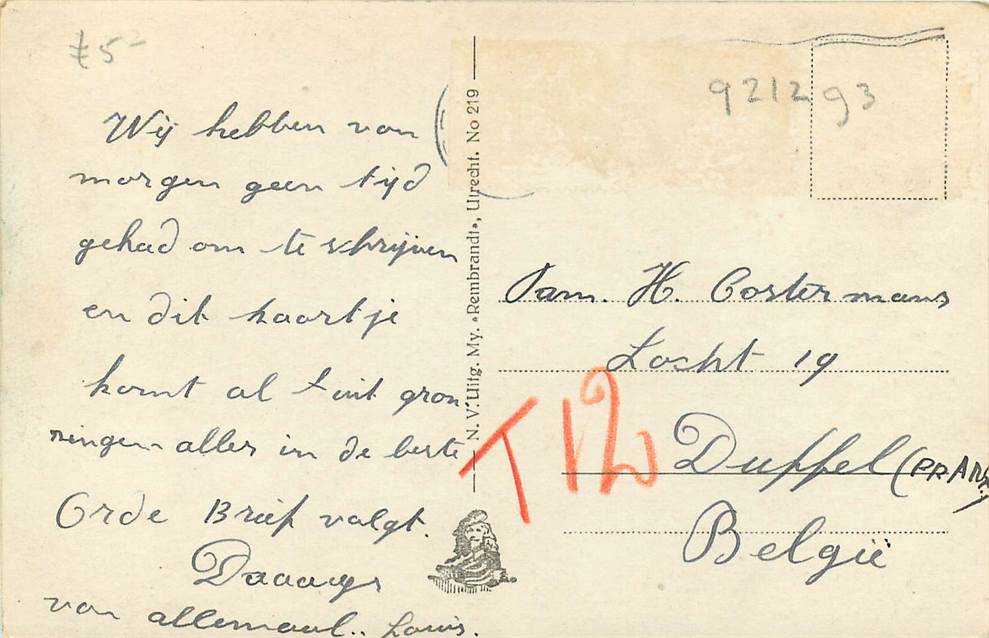 £5-
Wij hebben van
morgen geen tijd
gehad om te schrijven
en dit kaartje
komt al t uit gron
ningen alles in de beste
Orde Brief volgt.
Daaags
van allemaal.. Louis.
N. V. Uitg. My. «Rembrandt», Utrecht. No 219
921293
Fam. H. Costermans
Locht 19
T 12
Duffel (PR ANt.)
België